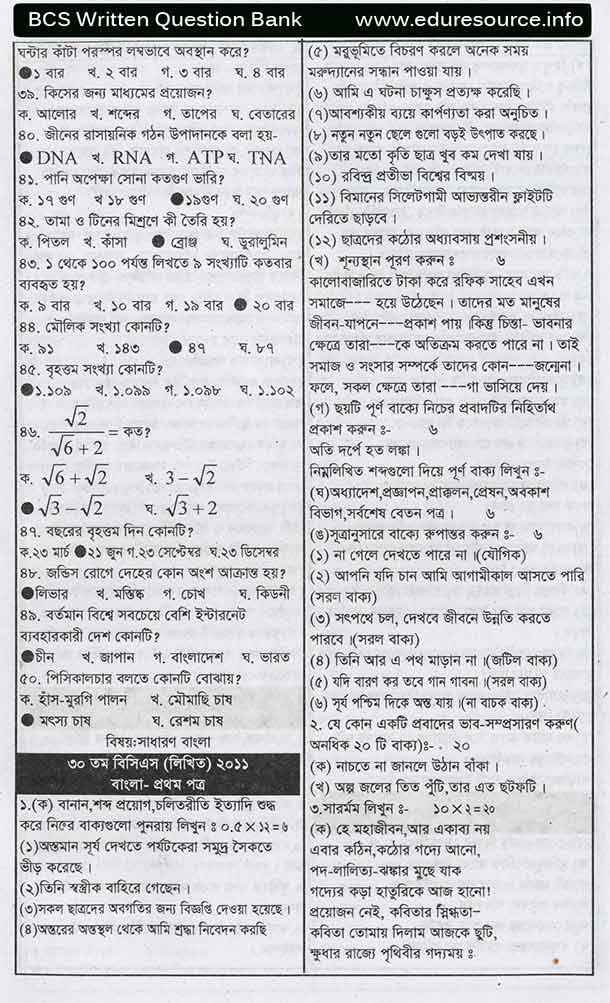 BCS Written Question Bank
www.eduresource.info
ঘন্টার কাঁটা পরস্পর লম্বভাবে অবস্থান করে?
●১ বার খ. ২ বার গ. ৩ বার ঘ. ৪ বার
৩৯. কিসের জন্য মাধ্যমের প্রয়োজন?
ক. আলোর খ. শব্দের গ. তাপের ঘ. বেতারের
৪০. জীনের রাসায়নিক গঠন উপাদানকে বলা হয়-
● DNA খ. RNA গ. ATP ঘ. TNA
৪১. পানি অপেক্ষা সোনা কতগুণ ভারি?
ক. ১৭ গুণ খ ১৮ গুণ ●১৯গুণ ঘ. ২০ গুণ
৪২. তামা ও টিনের মিশ্রণে কী তৈরি হয়?
ক. পিতল খ. কাঁসা ● ব্রোঞ্জ ঘ. ডুরালুমিন
৪৩. ১ থেকে ১০০ পর্যন্ত লিখতে ৯ সংখ্যাটি কতবার
ব্যবহৃত হয়?
ক. ৯ বার খ. ১০ বার গ. ১৯ বার ● ২০ বার
৪৪. মৌলিক সংখ্যা কোনটি?
ক. ৯১ খ. ১৪৩ ● ৪৭ ঘ. ৮৭
৪৫. বৃহত্তম সংখ্যা কোনটি?
●১.১০৯ খ. ১.০৯৯ গ. ১.০৯৮ ঘ. ১.১০২
৪৬. √2 / (√6 + 2) = কত?
ক. √6 + √2 খ. 3 − √2
● √3 − √2 ঘ. √3 + 2
৪৭. বছরের বৃহত্তম দিন কোনটি?
ক.২৩ মার্চ ●২১ জুন গ.২৩ সেপ্টেম্বর ঘ.২৩ ডিসেম্বর
৪৮. জন্ডিস রোগে দেহের কোন অংশ আক্রান্ত হয়?
●লিভার খ. মস্তিষ্ক গ. চোখ ঘ. কিডনী
৪৯. বর্তমান বিশ্বে সবচেয়ে বেশি ইন্টারনেট
ব্যবহারকারী দেশ কোনটি?
●চীন খ. জাপান গ. বাংলাদেশ ঘ. ভারত
৫০. পিসিকালচার বলতে কোনটি বোঝায়?
ক. হাঁস-মুরগি পালন খ. মৌমাছি চাষ
● মৎস্য চাষ ঘ. রেশম চাষ
বিষয়:সাধারণ বাংলা
৩০ তম বিসিএস (লিখিত) ২০১১
বাংলা- প্রথম পত্র
১.(ক) বানান,শব্দ প্রয়োগ,চলিতরীতি ইত্যাদি শুদ্ধ
করে নিচের বাক্যগুলো পুনরায় লিখুন ঃ ০.৫ × ১২=৬
(১)অস্তমান সূর্য দেখতে পর্যটকেরা সমুদ্র সৈকতে
ভীড় করেছে ।
(২)তিনি স্বস্ত্রীক বাহিরে গেছেন ।
(৩)সকল ছাত্রদের অবগতির জন্য বিজ্ঞপ্তি দেওয়া হয়েছে ।
(৪)অন্তরের অন্তস্থল থেকে আমি শ্রদ্ধা নিবেদন করছি
(৫) মরুভূমিতে বিচরণ করলে অনেক সময়
মরুদ্যানের সন্ধান পাওয়া যায় ।
(৬) আমি এ ঘটনা চাক্ষুস প্রত্যক্ষ করেছি ।
(৭)আবশ্যকীয় ব্যয়ে কার্পণ্যতা করা অনুচিত ।
(৮) নতুন নতুন ছেলে গুলো বড়ই উৎপাত করছে ।
(৯)তার মতো কৃতি ছাত্র খুব কম দেখা যায় ।
(১০) রবিন্দ্র প্রতীভা বিশ্বের বিষ্ময় ।
(১১) বিমানের সিলেটগামী আভ্যন্তরীন ফ্লাইটটি
দেরিতে ছাড়বে ।
(১২) ছাত্রদের কঠোর অধ্যাবসায় প্রশংসনীয় ।
(খ) শূন্যস্থান পূরণ করুন ঃ ৬
কালোবাজারিতে টাকা করে রফিক সাহেব এখন
সমাজে--- হয়ে উঠেছেন । তাদের মত মানুষের
জীবন-যাপনে---প্রকাশ পায় ।কিন্তু চিন্তা- ভাবনার
ক্ষেত্রে তারা---কে অতিক্রম করতে পারে না । তাই
সমাজ ও সংসার সম্পর্কে তাদের কোন---জন্মেনা ।
ফলে, সকল ক্ষেত্রে তারা ---গা ভাসিয়ে দেয় ।
(গ) ছয়টি পূর্ণ বাক্যে নিচের প্রবাদটির নিহিতার্থ
প্রকাশ করুন ঃ- ৬
অতি দর্পে হত লঙ্কা ।
নিম্নলিখিত শব্দগুলো দিয়ে পূর্ণ বাক্য লিখুন ঃ-
(ঘ)অধ্যাদেশ,প্রজ্ঞাপন,প্রাক্কলন,প্রেষন,অবকাশ
বিভাগ,সর্বশেষ বেতন পত্র । ৬
(ঙ)সূত্রানুসারে বাক্যে রুপান্তর করুন ঃ- ৬
(১) না গেলে দেখতে পারে না ।(যৌগিক)
(২) আপনি যদি চান আমি আগামীকাল আসতে পারি
(সরল বাক্য)
(৩) সৎপথে চল, দেখবে জীবনে উন্নতি করতে
পারবে ।(সরল বাক্য)
(৪) তিনি আর এ পথ মাড়ান না ।(জটিল বাক্য)
(৫) যদি বারণ কর তবে গান গাবনা ।(সরল বাক্য)
(৬) সূর্য পশ্চিম দিকে অস্ত যায় ।(না বাচক বাক্য) .
২. যে কোন একটি প্রবাদের ভাব-সম্প্রসারণ করুণ(
অনধিক ২০ টি বাক্য)ঃ- . ২০
(ক) নাচতে না জানলে উঠান বাঁকা ।
(খ) অল্প জলের তিত পুঁটি,তার এত ছটফটি ।
৩.সারর্মম লিখুন ঃ- ১০ × ২=২০
(ক) হে মহাজীবন,আর একাব্য নয়
এবার কঠিন,কঠোর গদ্যে আনো,
পদ-লালিত্য-ঝঙ্কার মুছে যাক
গদ্যের কড়া হাতুরিকে আজ হানো!
প্রয়োজন নেই, কবিতার স্নিগ্ধতা–
কবিতা তোমায় দিলাম আজকে ছুটি,
ক্ষুধার রাজ্যে পৃথিবীর গদ্যময় ঃ